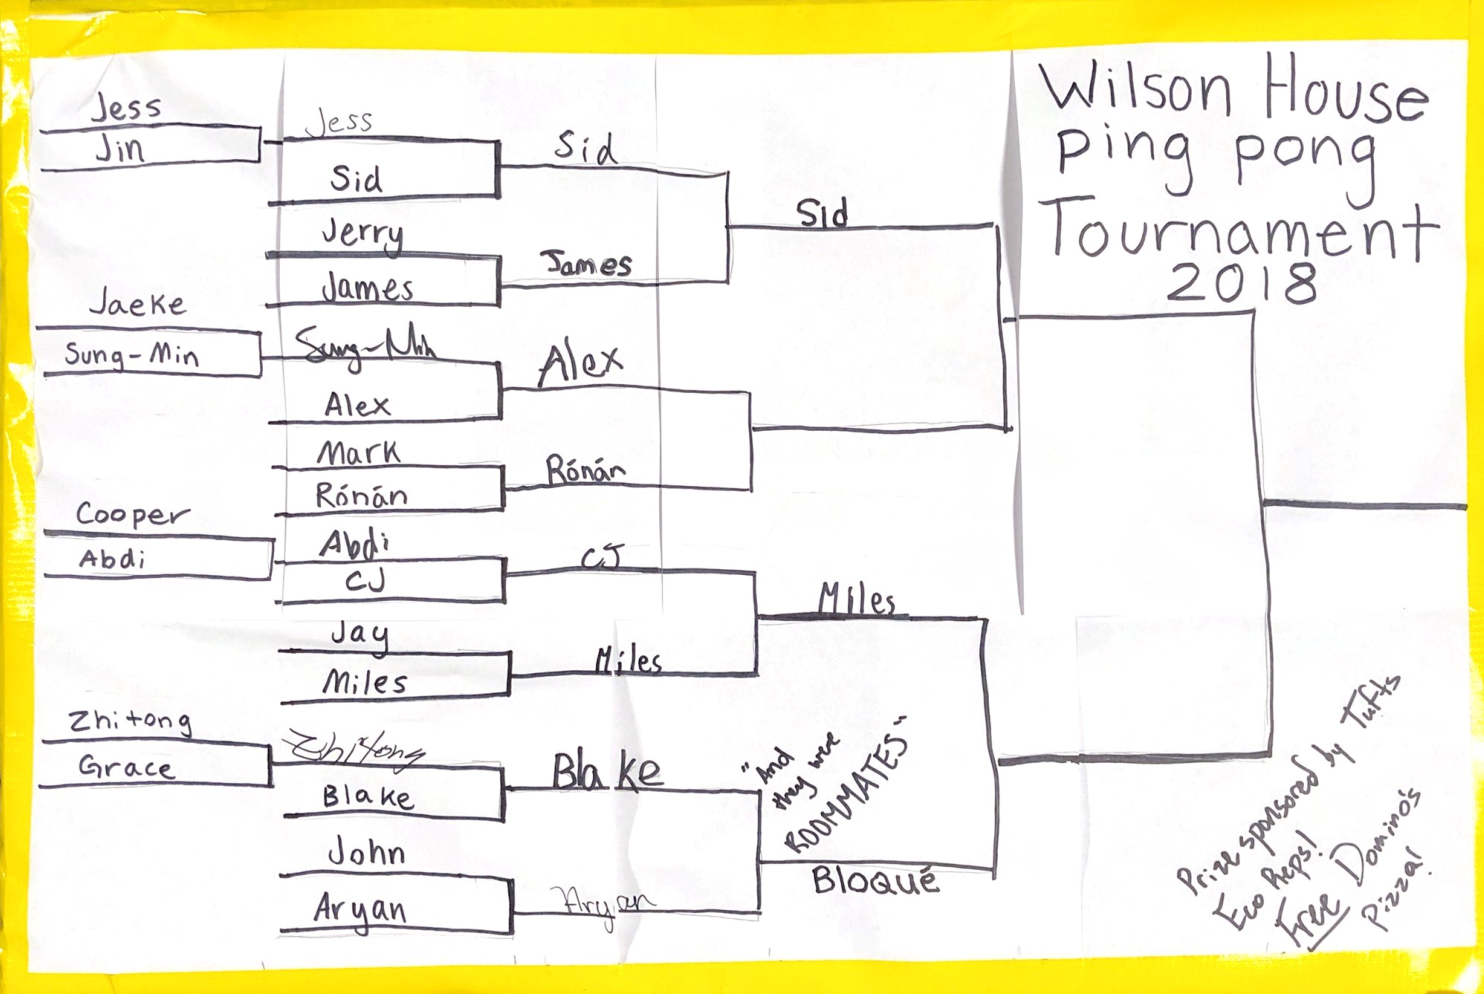 Wilson House
ping pong
Tournament
2018
Jess
Jin
Jaeke
Sung-Min
Cooper
Abdi
Zhitong
Grace
Jess
Sid
Jerry
James
Sung-Min
Alex
Mark
Rónán
Abdi
CJ
Jay
Miles
Zhitong
Blake
John
Aryan
Sid
James
Alex
Rónán
CJ
Miles
Blake
Aryan
Sid
Miles
"And
they were
ROOMMATES"
Bloqué
Prize sponsored by Tufts
Eco Reps!
Free Domino's
Pizza!